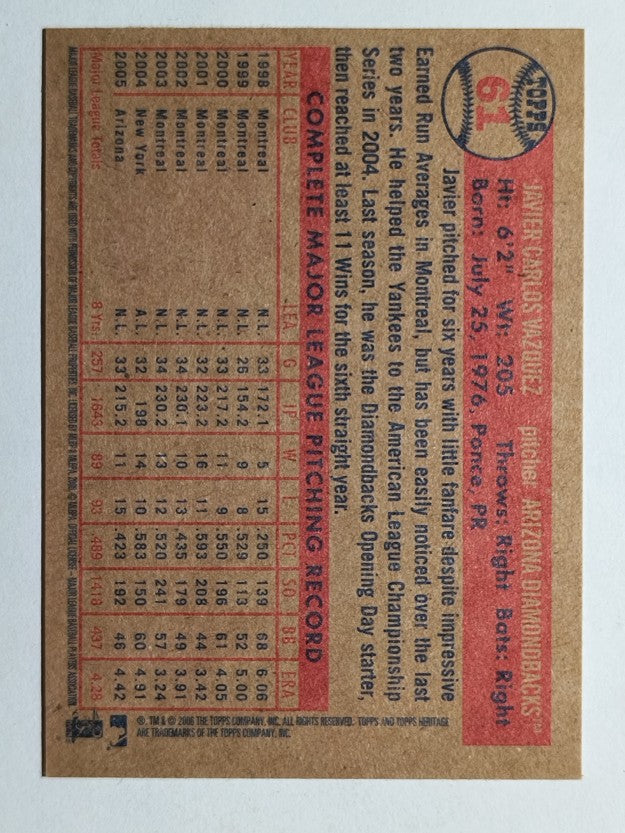 TOPPS
61
JAVIER CARLOS VAZQUEZ pitcher ARIZONA DIAMONDBACKS™
Ht: 6'2" Wt: 205 Throws: Right Bats: Right
Born: July 25, 1976, Ponce, PR
Javier pitched for six years with little fanfare despite impressive
Earned Run Averages in Montreal, but has been easily noticed over the last
two years. He helped the Yankees to the American League Championship
Series in 2004. Last season, he was the Diamondbacks Opening Day starter,
then reached at least 11 Wins for the sixth straight year.
COMPLETE MAJOR LEAGUE PITCHING RECORD
YEAR CLUB LEA G IP W L PCT SO BB ERA
1998 Montreal N.L. 33 172.1 5 15 .250 139 68 6.06
1999 Montreal N.L. 26 154.2 9 8 .529 113 52 5.00
2000 Montreal N.L. 33 217.2 11 9 .550 196 61 4.05
2001 Montreal N.L. 32 223.2 16 11 .593 208 44 3.42
2002 Montreal N.L. 34 230.1 10 13 .435 179 49 3.91
2003 Montreal N.L. 34 230.2 13 12 .520 241 57 3.24
2004 New York A.L. 32 198 14 10 .583 150 60 4.91
2005 Arizona N.L. 33 215.2 11 15 .423 192 46 4.42
Major League Totals 8 Yrs. 257 1643 89 93 .489 1418 437 4.28
®, TM & © 2006 THE TOPPS COMPANY, INC. ALL RIGHTS RESERVED. TOPPS AND TOPPS HERITAGE
ARE TRADEMARKS OF THE TOPPS COMPANY, INC.